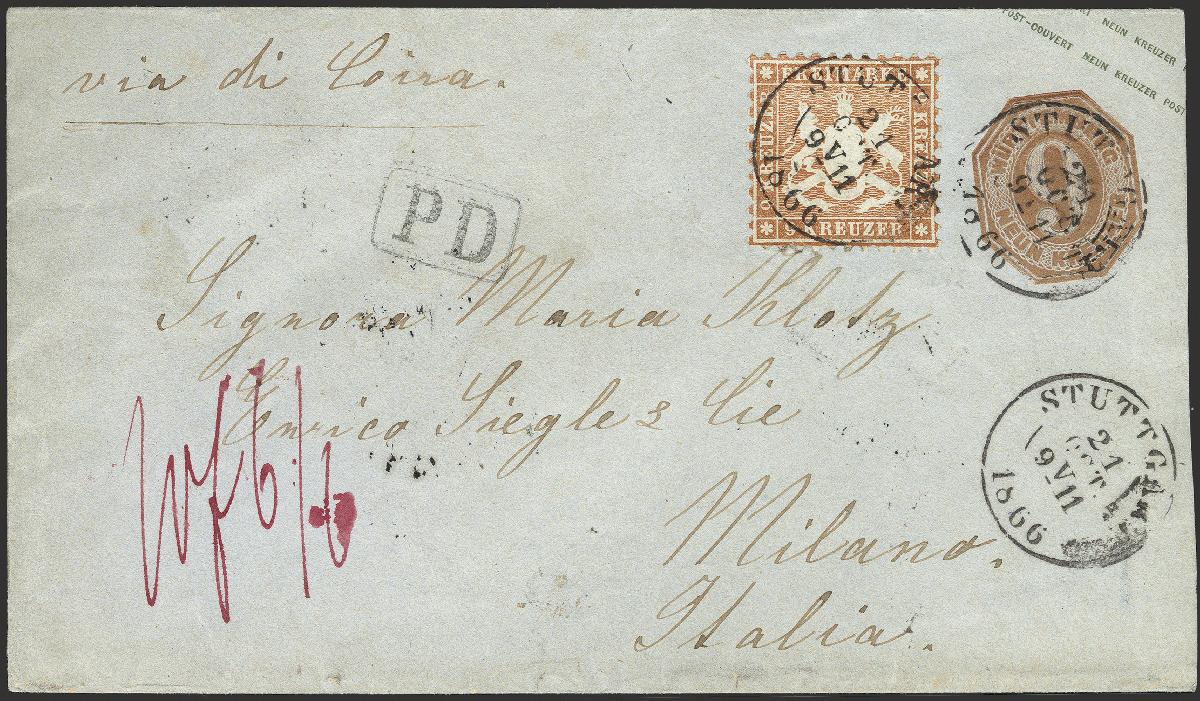 POST-COUVERT NEUN KREUZER
NEUN KREUZER POST
via di Coira.
FREIMARKE
9 KREUZER
STUTTGART
21
OCT.
9 V 11
1866
NEUN KREUZER
STUTTGART
21
OCT.
9 V 11
1866
PD
Signora Maria Klotz
Enrico Siegle & Cie
STUTTGART
21
OCT.
9 V 11
1866
wf 6/6
Milano.
Italia.